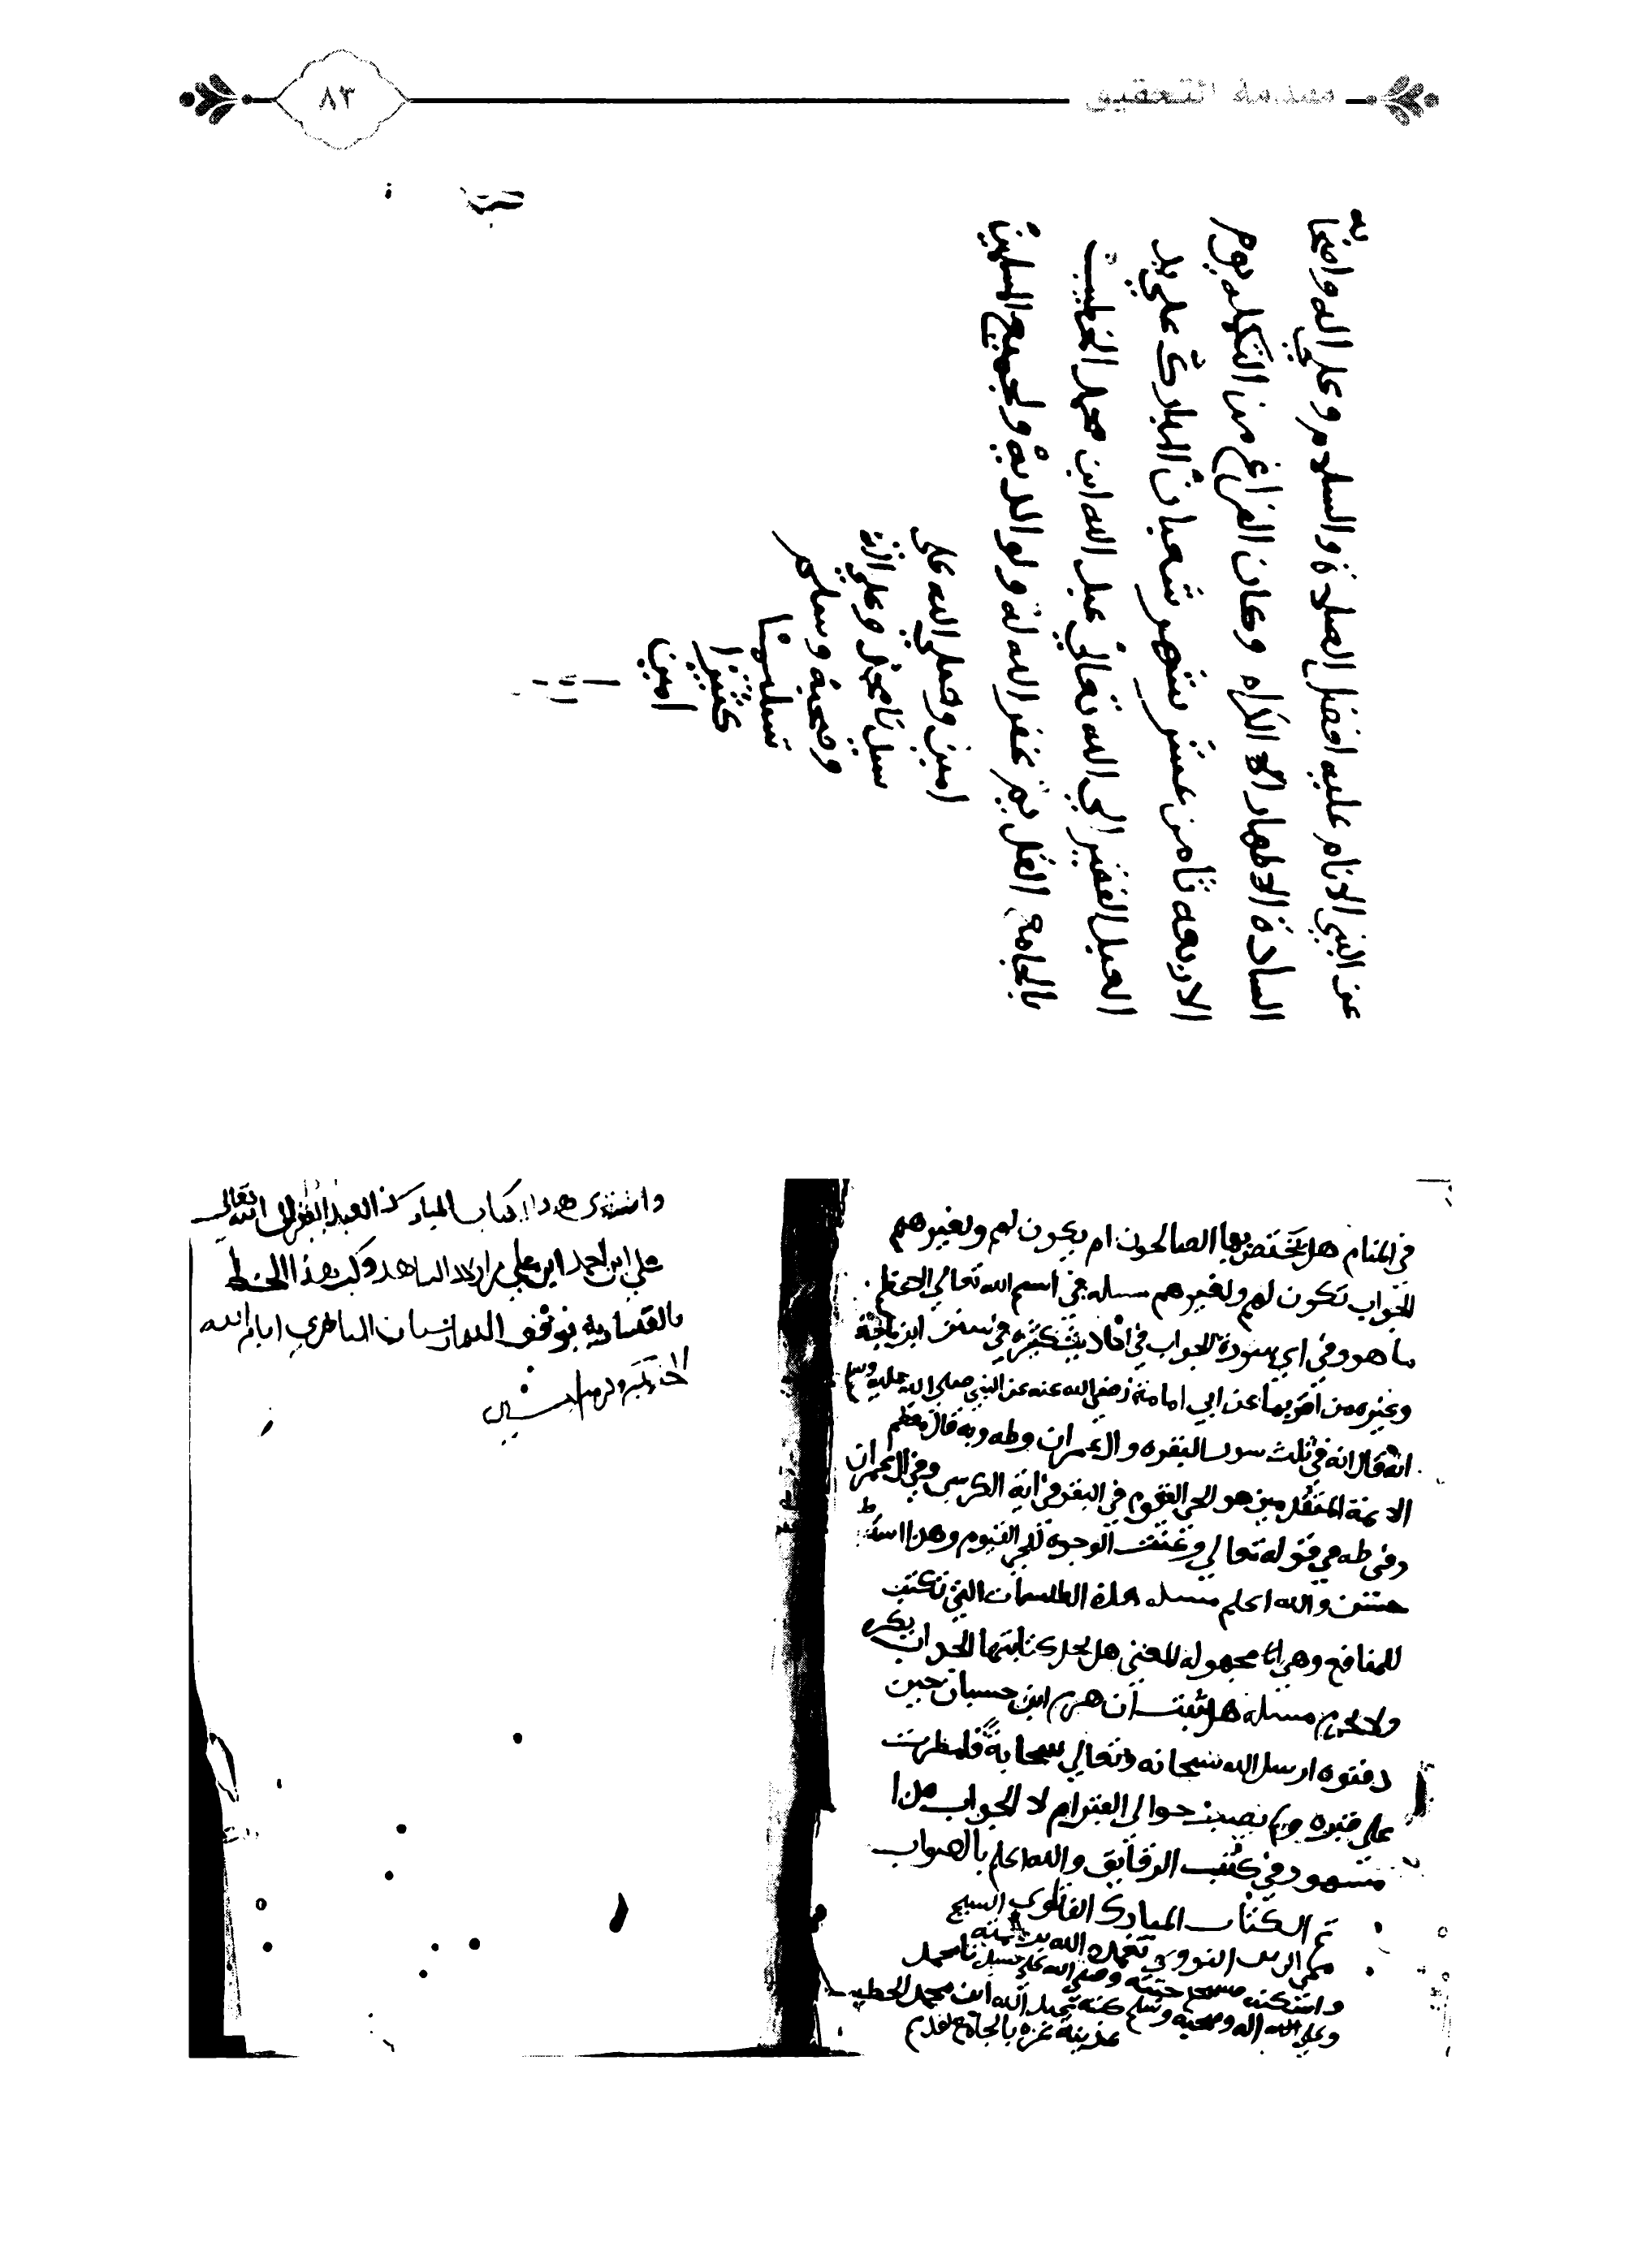 مقدمة التحقيق
٨٣
عن النبي الانام عليه افضل الصلاة والسلام وعلي اله واصحابه
السادة الاطهار الاكرام وكان الفراغ من التكمله يوم
الاربعه ثامن عشر شهر شعبان المبارك علي يد
العبد الفقير الي الله تعالي عبد الله ابن محمد الخطيب
بالجامع القديم غفر الله له ولوالديه ولجميع المسلمين
امين وصلي الله على
سيدنا محمد وعلي اله
وصحبه وسلم
تسليما
كثيرا
امين
في المنام هل يختص بها الصالحون ام يكون لهم ولغيرهم
الجواب تكون لهم ولغيرهم مسله في اسم الله تعالي الاعظم
ما هو وفي اي سورة الجواب في احاديث كثيره في سنن ابن ماجة
وغيره من عن ابي امامة رضي الله عنه عن النبي صلي الله عليه وسلم
انه قال انه في ثلث سور البقره وال عمران وطه وبه قال معظم
الائمة المتقدمين هو الحي القيوم في البقره في اية الكرسي وفي ال عمران
وفي طه في قوله تعالي وعنت الوجوه للحي القيوم وهذا استنباط
حسن والله اعلم مسله هذه الطلسمات التي تكتب
للمنافع وهي مجهوله المعني هل يحل كتابتها الجواب يكره
ولا يحرم مسله هل ثبت ان هرم ابن حسان حين
دفنوه ارسل الله سبحانه وتعالي سحابة فامطرت
علي قبره ولم يصب حوالي القبر ام لا الجواب هذا
مشهور في كتب الرقايق والله اعلم بالصواب
تم الكتاب المبارك الفتاوي الشيخ
محي الدين النووي تغمده الله برحمته
واسكنه فسيح جنته وصلي الله علي سيدنا محمد
وعلي اله وصحبه وسلم كتبه عبد الله ابن محمد الخطيب
بمدينة غزه بالجامع القديم
واشترى هذا الكتاب المبارك العبد الفقير الى الله تعالى
علي ابن احمد ابن علي وكتب هذا الخط